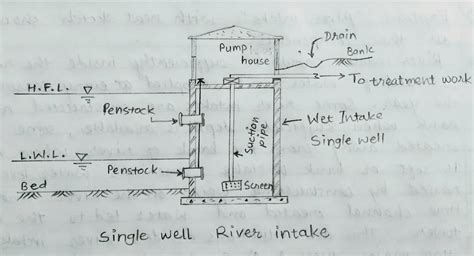 Drain
Pump house
Bank
To treatment work
H.F.L.
Penstock
Suction pipe
Wet Intake
Single well
L.W.L.
Penstock
Screen
Bed
Single well River intake